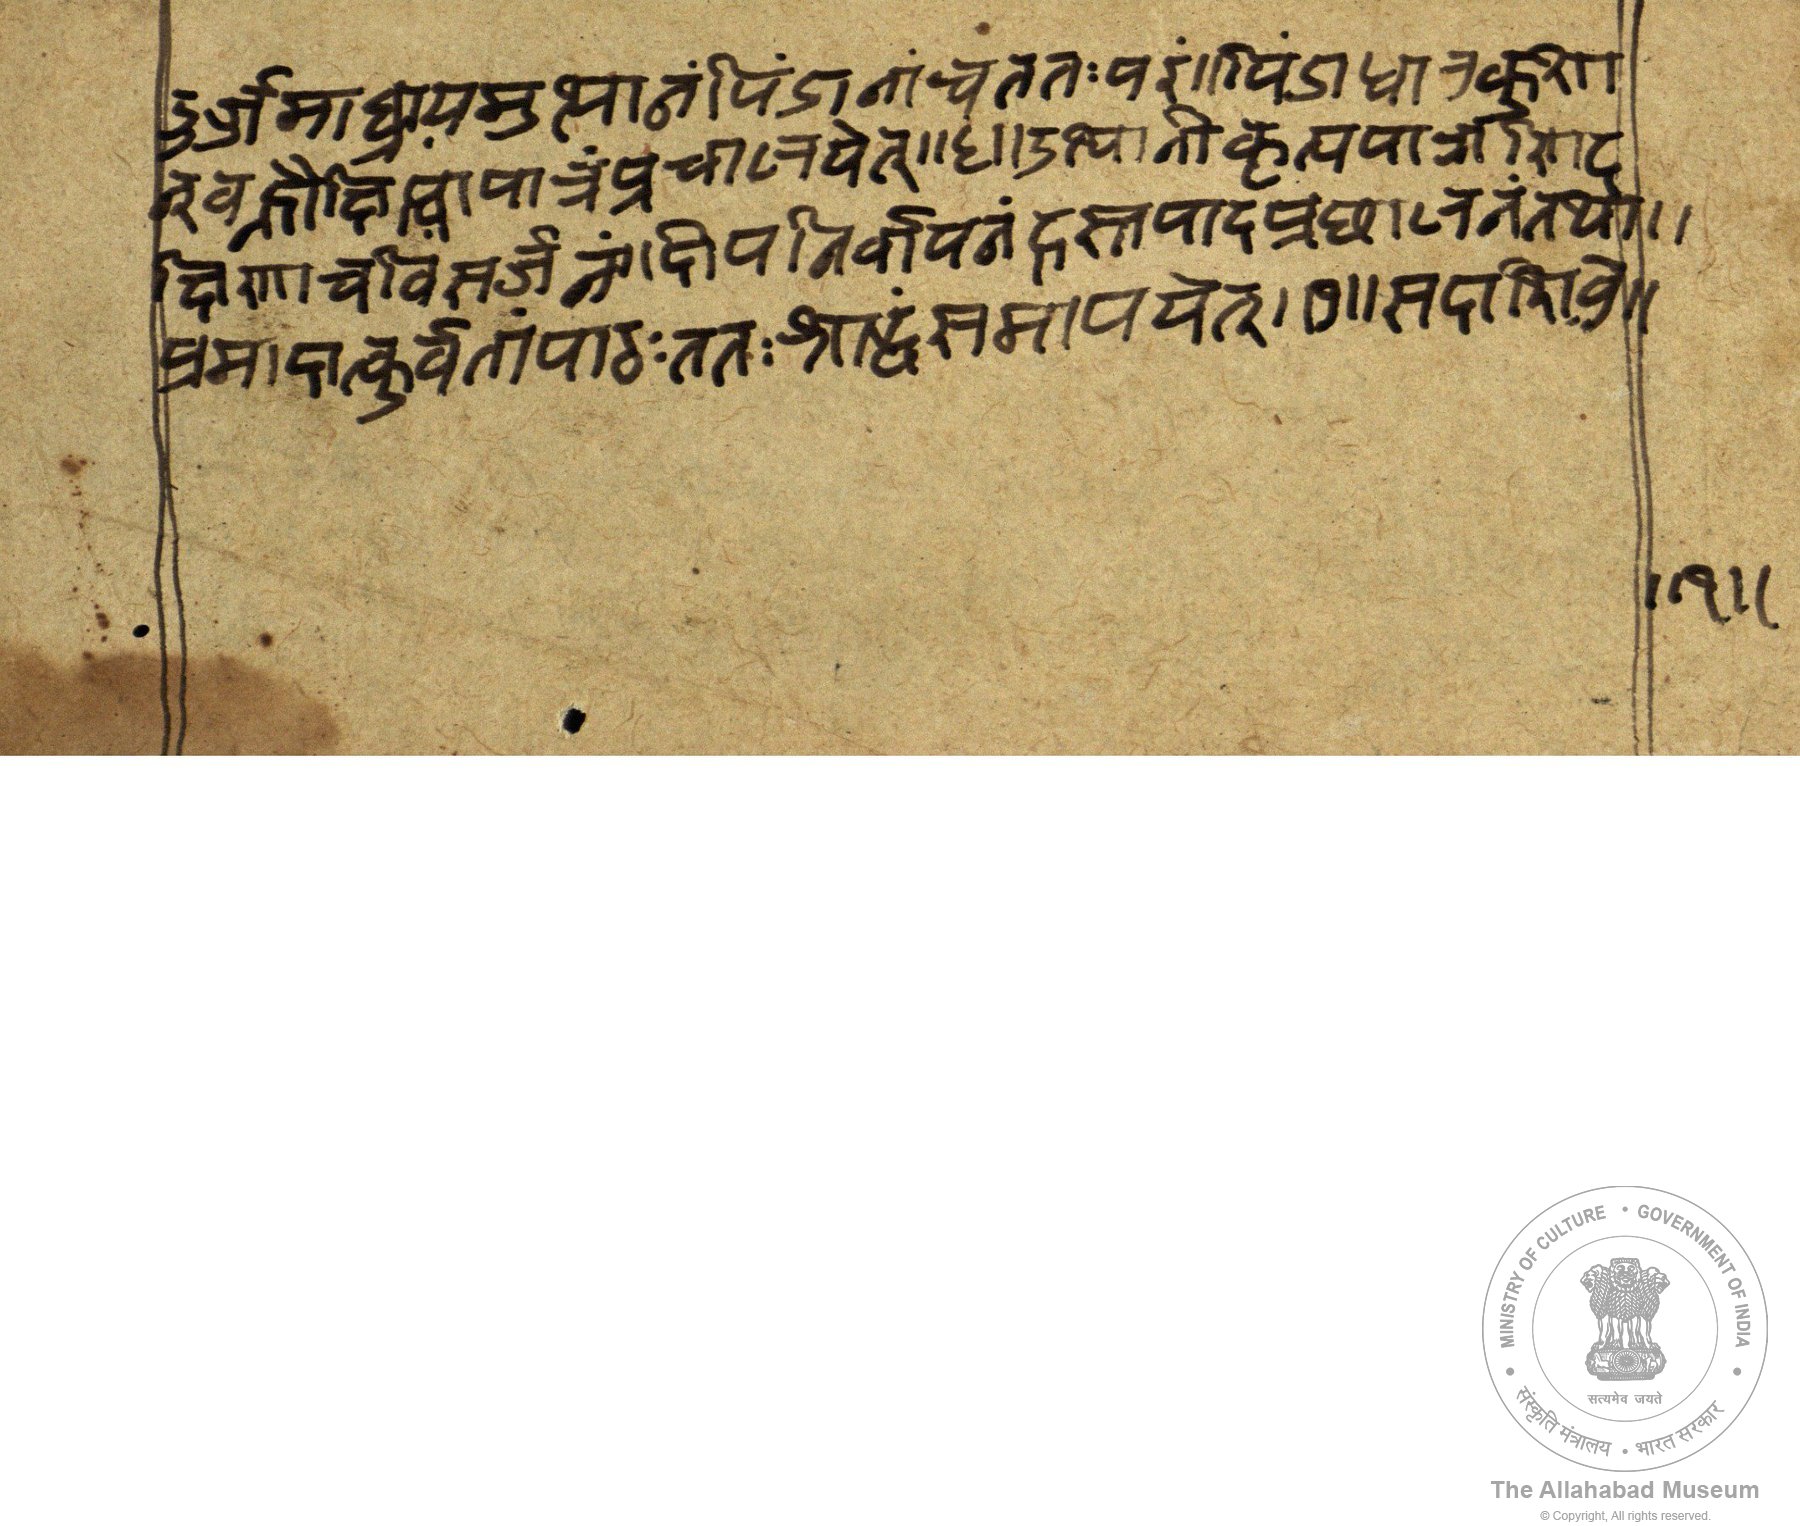 दुर्जमाघ्रायमुत्थानंपिंडानांचततःपरं॥पिंडाधात्रकुशा
न्वन्हौक्षिप्त्वापात्रंप्रचालयेत्॥६॥उत्थानीकृत्यपात्राणिद
क्षिणाचविसर्जनं॥दीपनिर्वापनंहस्तपादप्रछालनंतथा॥
प्रमादात्कुर्वतांपाठःततःश्राद्धंसमापयेत्।७॥सदाशिवे॥
॥१॥
MINISTRY OF CULTURE • GOVERNMENT OF INDIA
सत्यमेव जयते
संस्कृति मंत्रालय • भारत सरकार
The Allahabad Museum
© Copyright, All rights reserved.